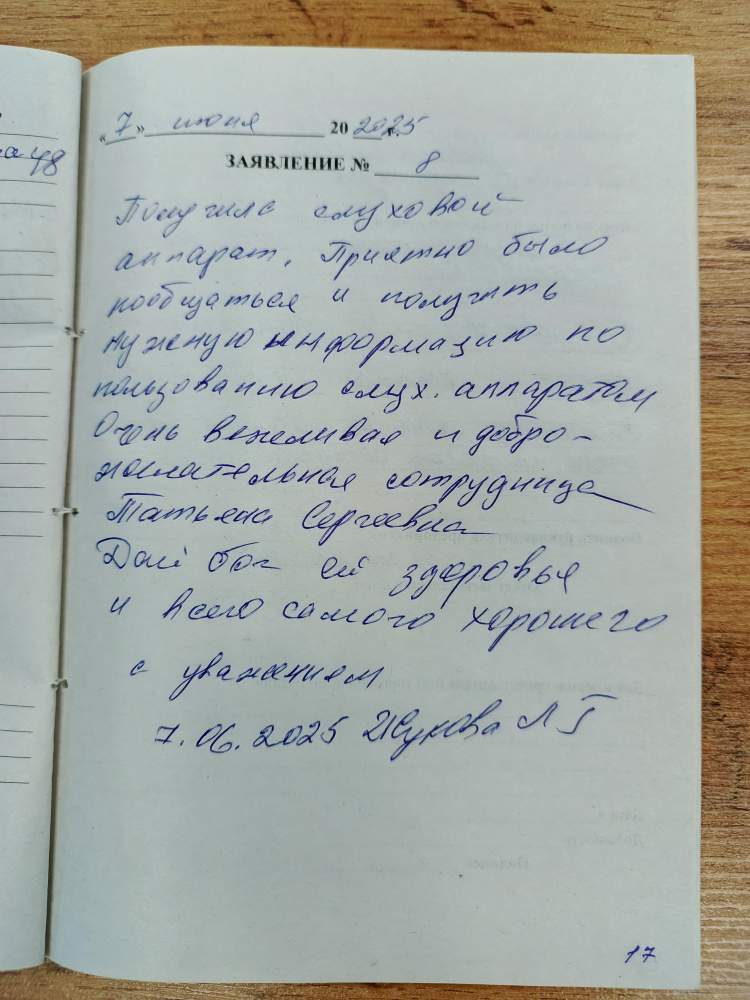 а 48
« 7 » июня 20 2025 г.
ЗАЯВЛЕНИЕ № 8
Получила слуховой
аппарат. Приятно было
пообщаться и получить
нуженую информацию по
пользованию слух. аппаратом
Очень вежливая и добро-
желательная сотрудница
Татьяна Сергеевна
Дай бог ей здоровья
и всего самого хорошего
с уважением
7.06.2025 Жукова Л Г
17